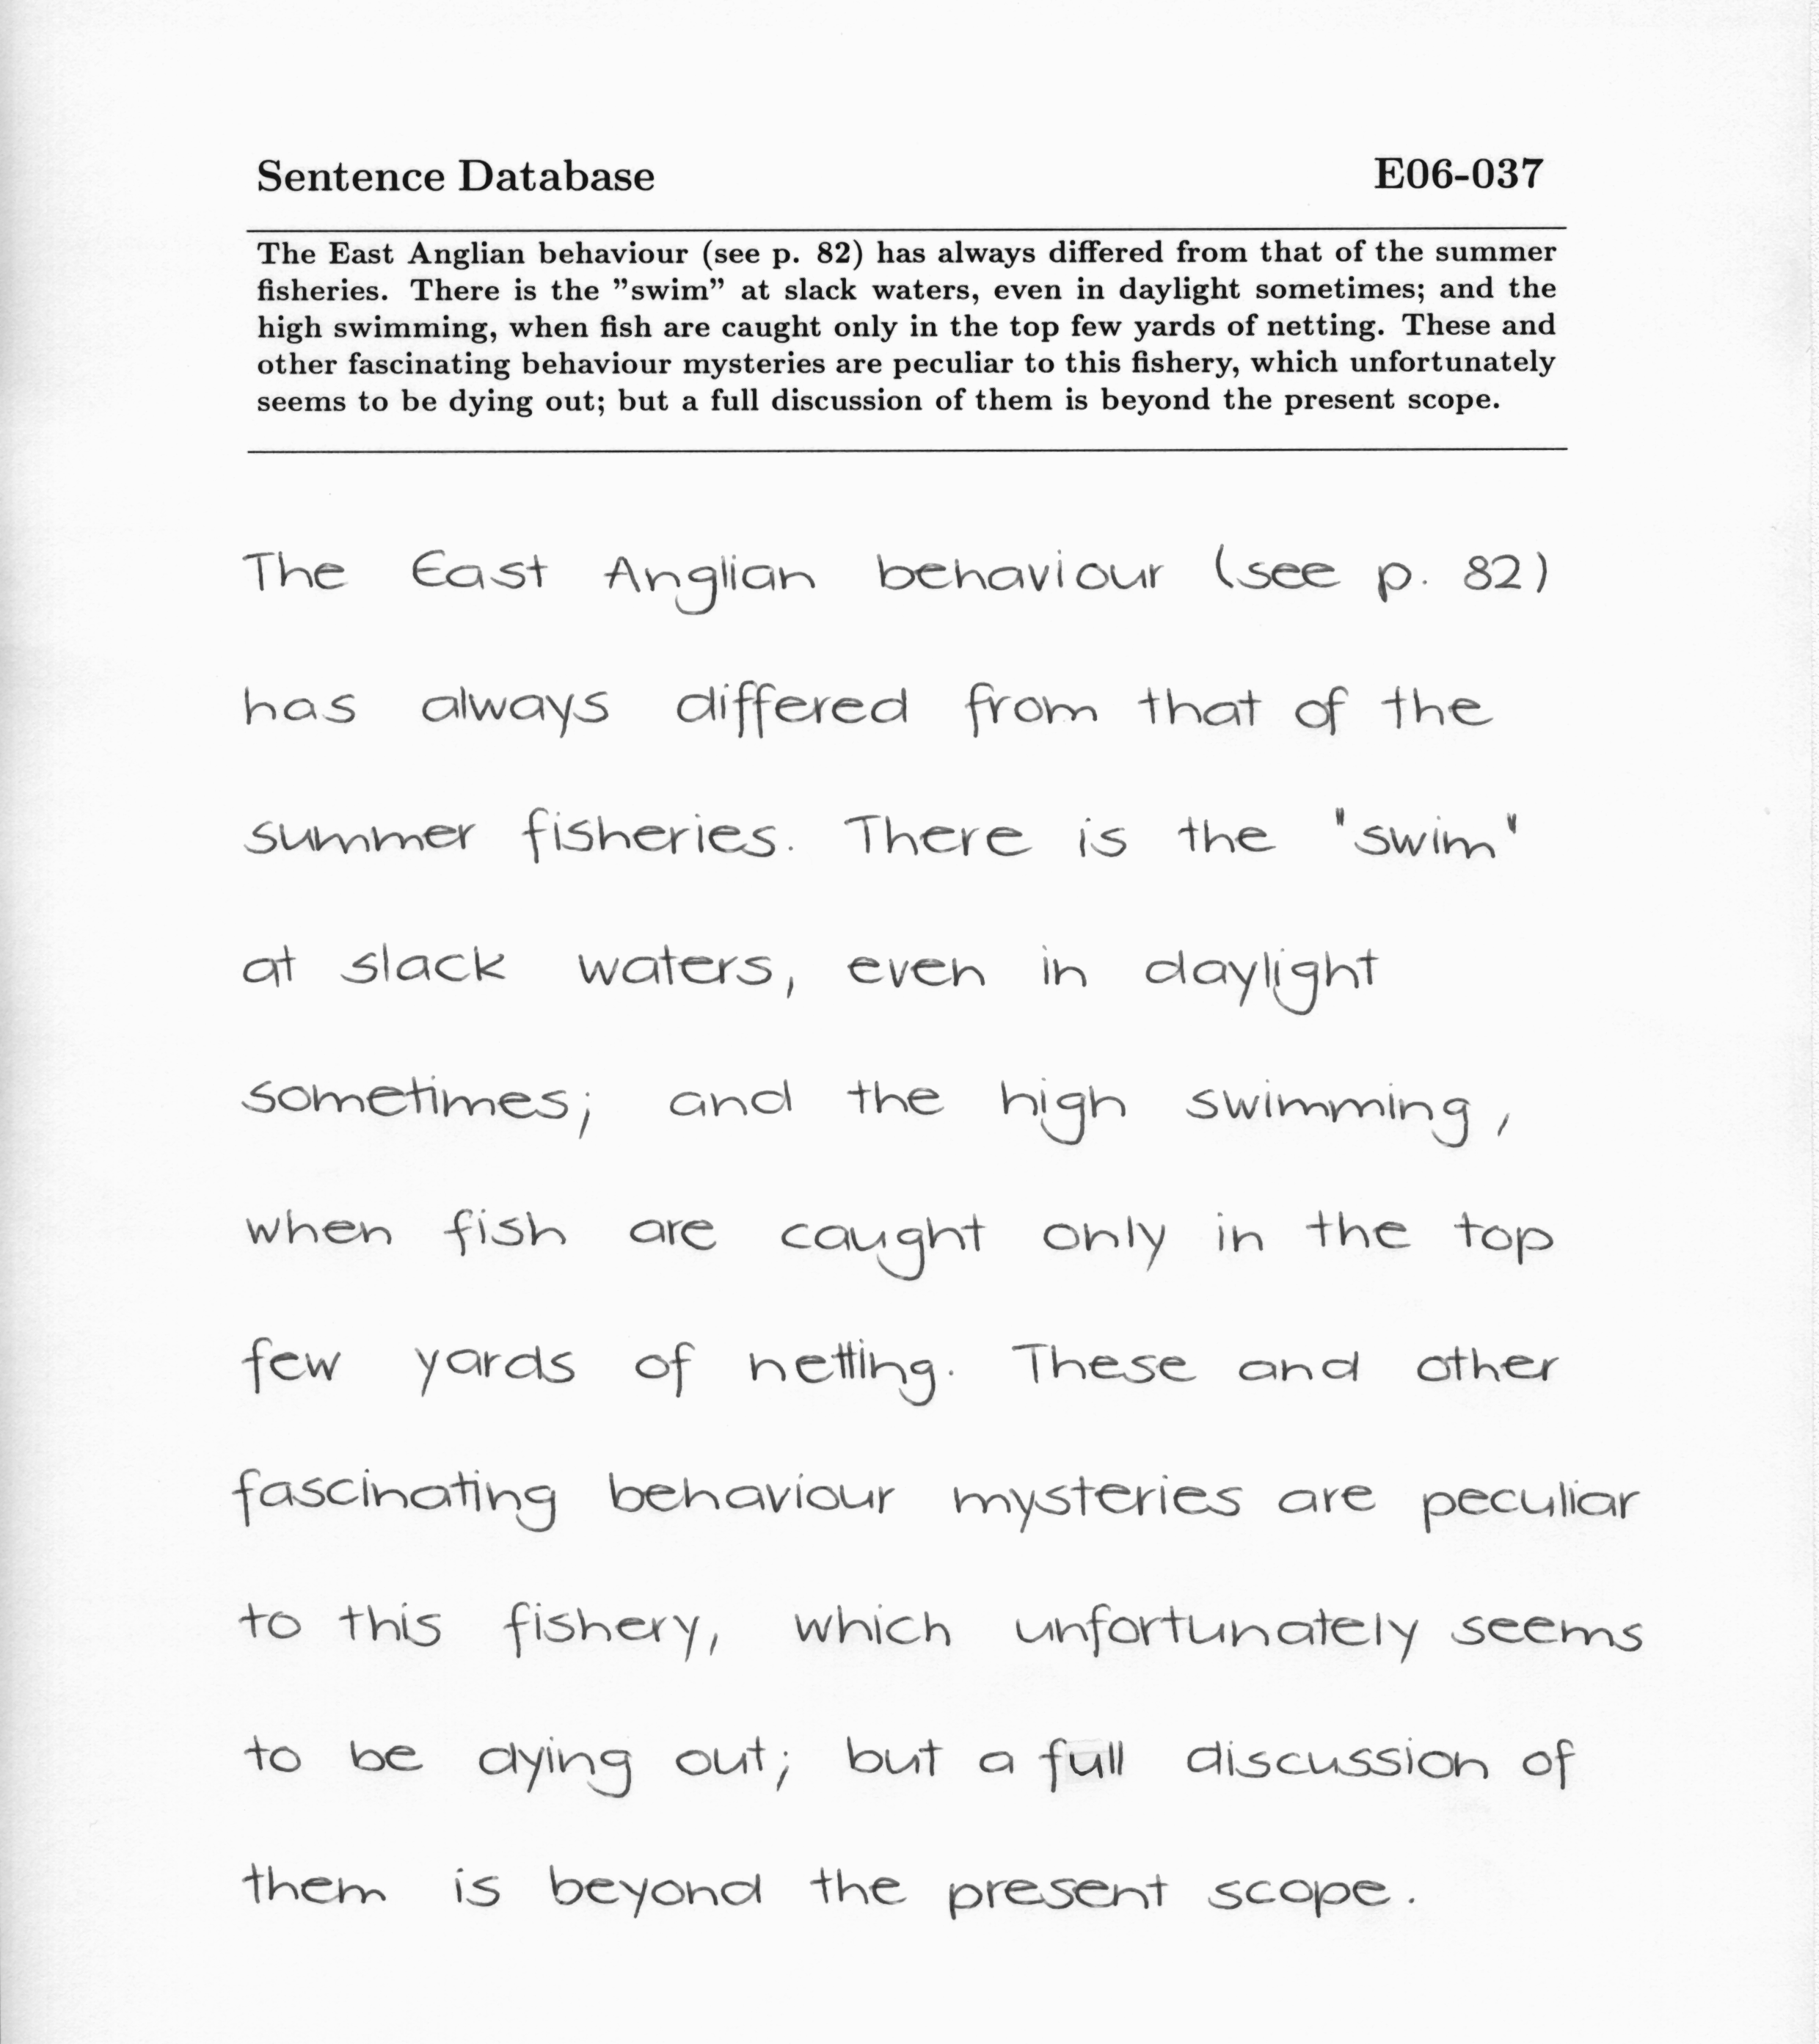 Sentence Database E06-037
The East Anglian behaviour (see p. 82) has always differed from that of the summer
fisheries. There is the "swim" at slack waters, even in daylight sometimes; and the
high swimming, when fish are caught only in the top few yards of netting. These and
other fascinating behaviour mysteries are peculiar to this fishery, which unfortunately
seems to be dying out; but a full discussion of them is beyond the present scope.
The East Anglian behaviour (see p. 82)
has always differed from that of the
summer fisheries. There is the "swim"
at slack waters, even in daylight
sometimes; and the high swimming,
when fish are caught only in the top
few yards of netting. These and other
fascinating behaviour mysteries are peculiar
to this fishery, which unfortunately seems
to be dying out; but a full discussion of
them is beyond the present scope.